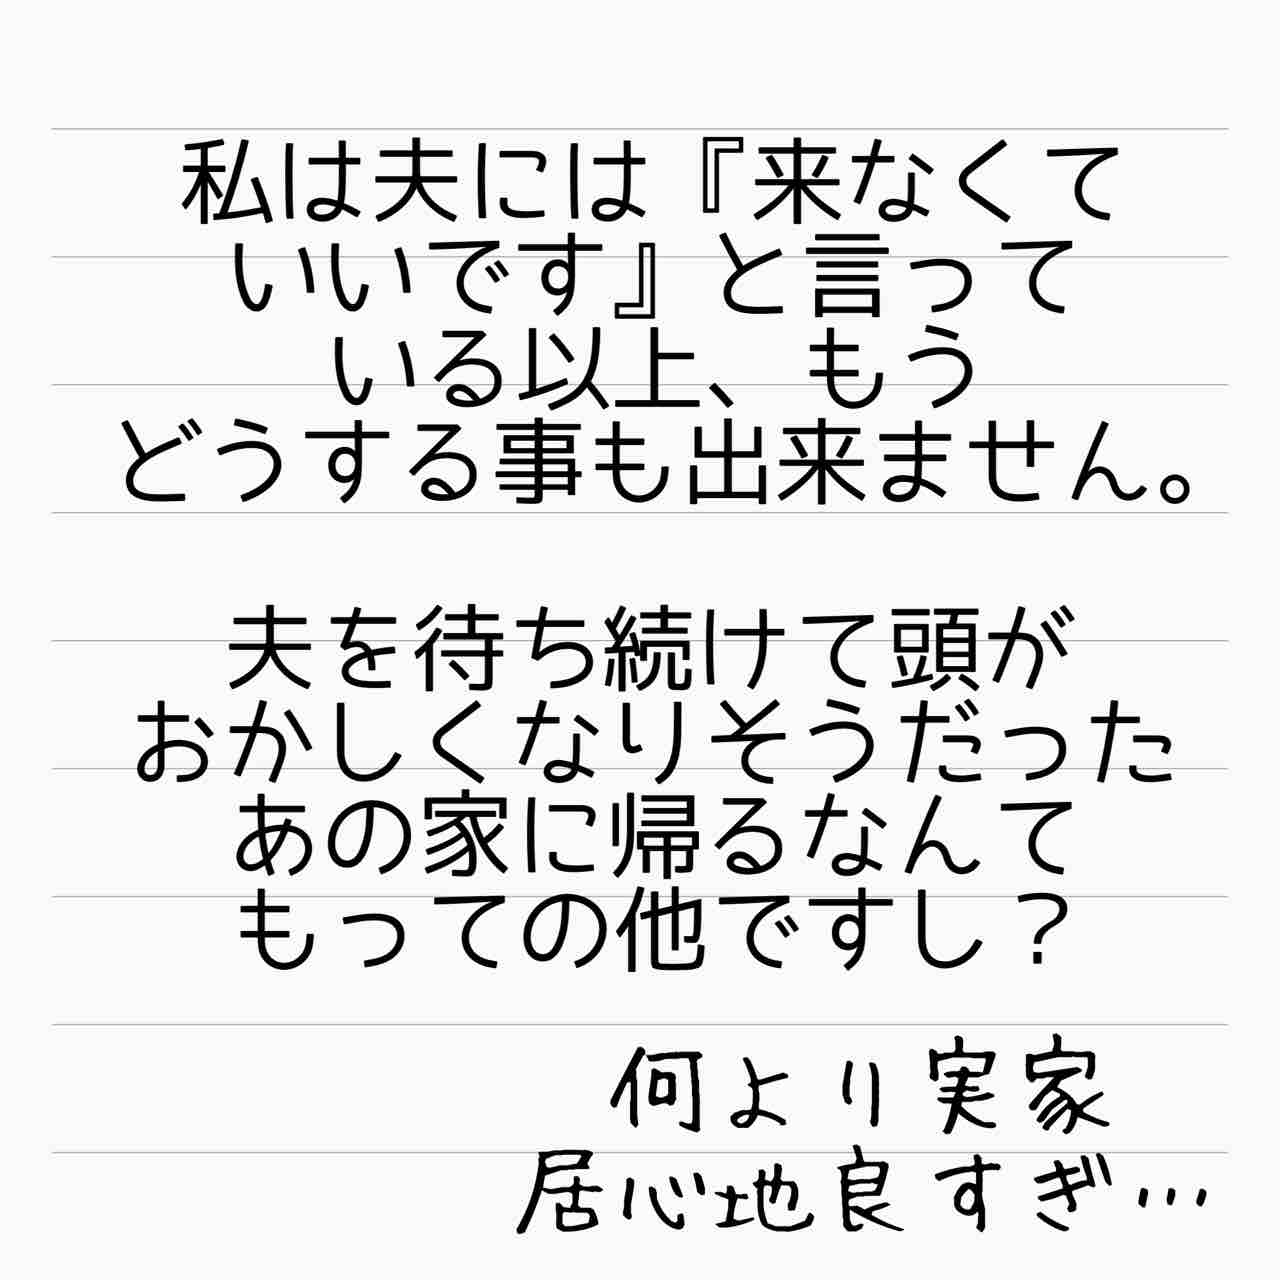 私は夫には『来なくて
いいです』と言って
いる以上、もう
どうする事も出来ません。
夫を待ち続けて頭が
おかしくなりそうだった
あの家に帰るなんて
もっての他ですし？
何より実家
居心地良すぎ…